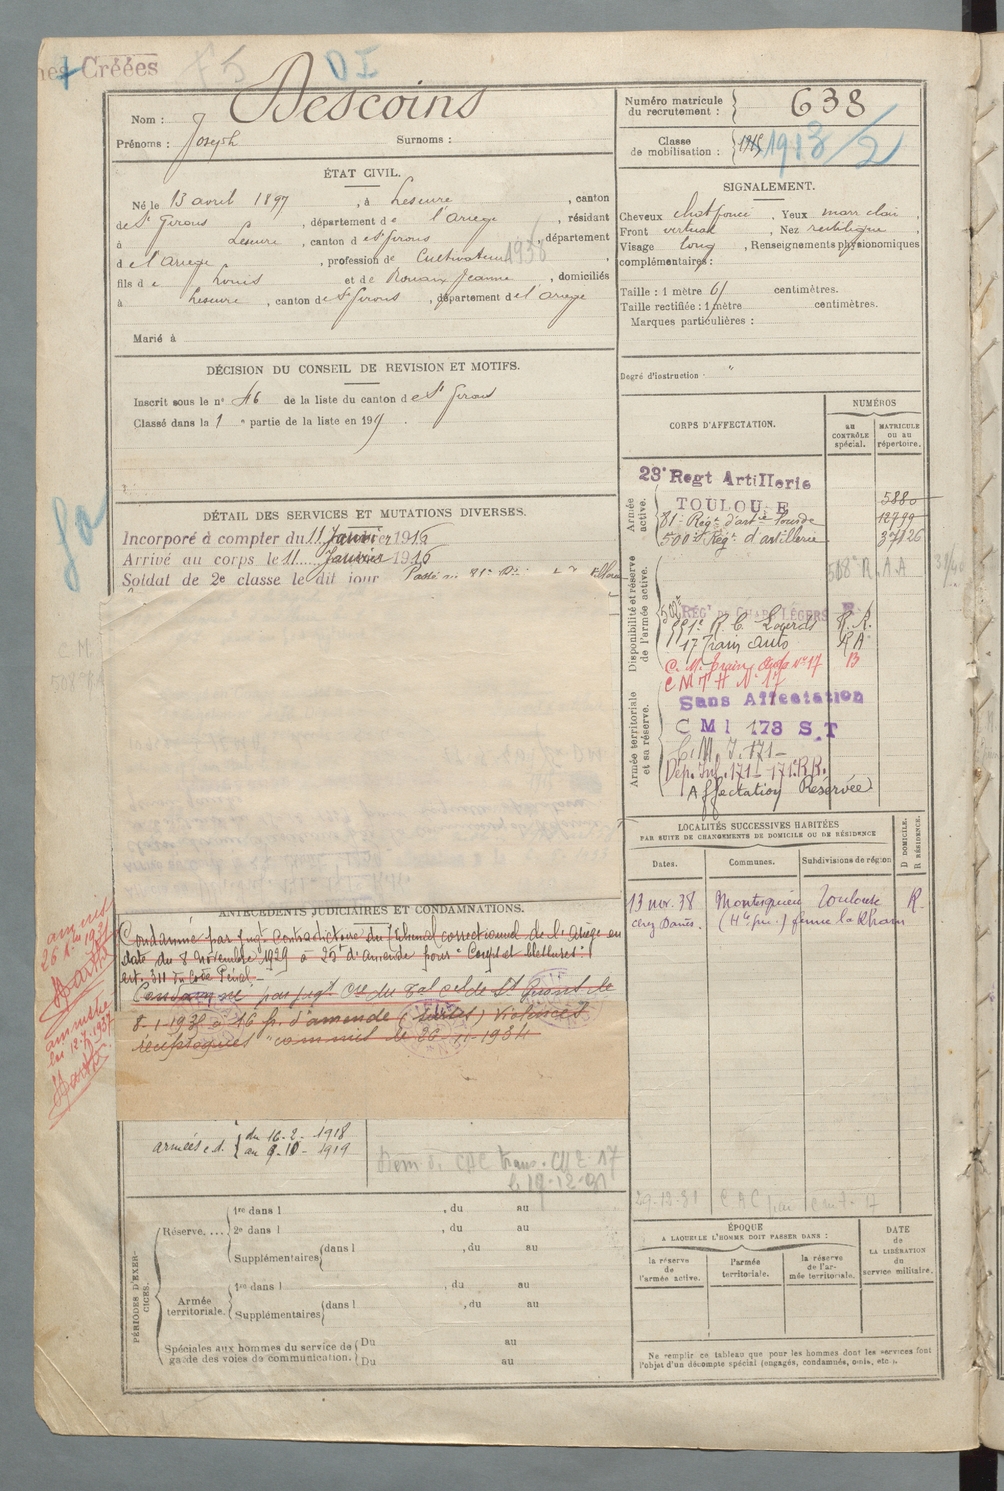 Créées
DI
Nom : Descoins
Prénoms : Joseph Surnoms :
Numéro matricule du recrutement : 638
Classe de mobilisation : 1913/2
ÉTAT CIVIL.
Né le 13 avril 1897, à Lescure, canton
de St Girons, département de l'Ariège, résidant
à Lescure, canton d e St Girons, département
d e l'Ariège, profession de Cultivateur 1938
fils d e Louis et de Rouaix Jeanne, domiciliés
à Lescure, canton de St Girons, département de l'Ariège
Marié à
SIGNALEMENT.
Cheveux chat foncé, Yeux marr clair,
Front vertical, Nez rectiligne,
Visage long, Renseignements physionomiques
complémentaires :
Taille : 1 mètre 61 centimètres.
Taille rectifiée : 1 mètre centimètres.
Marques particulières :
Degré d'instruction "
DÉCISION DU CONSEIL DE REVISION ET MOTIFS.
Inscrit sous le n° 46 de la liste du canton d e St Girons
Classé dans la 1 e partie de la liste en 191
DÉTAIL DES SERVICES ET MUTATIONS DIVERSES.
Incorporé à compter du 11 Janvier 1916
Arrivé au corps le 11 Janvier 1916
Soldat de 2e classe le dit jour Passé au 81e
CORPS D'AFFECTATION.
NUMÉROS
au CONTRÔLE spécial.
MATRICULE ou au répertoire.
Armée active.
23e Regt Artillerie
TOULOUSE 5880
81e Régt d'artie lourde 12799
500e Régt d'artillerie 37126
Disponibilité et réserve de l'armée active.
508e R.A.A
RÉGT DE CHARS LÉGERS
511e R. C. Légers R.R.
17 Train auto RA
C. M. Train Auto n° 17 B
C M T H N° 17
Armée territoriale et sa réserve.
Sans Affectation
C M I 173 S.T
C. M. I. 171
Dép. Inf. 171 - 171e RR.
Affectation Réservée
LOCALITÉS SUCCESSIVES HABITÉES
PAR SUITE DE CHANGEMENTS DE DOMICILE OU DE RÉSIDENCE
Dates. Communes. Subdivisions de région
D DOMICILE. R RÉSIDENCE.
13 nov. 38 Montesquieu Toulouse R.
(Hte Gne)
ANTÉCÉDENTS JUDICIAIRES ET CONDAMNATIONS.
Condamné par Jugt Contradictoire du Tribunal correctionnel de l'Ariège en
date du 8 Novembre 1929 à 25f d'amende pour "Coups et blessures"
art. 311 du Code Pénal.
Condamné par jugt Cre du Tal Cel de St Girons le
8-1-1935 à 16 fr. d'amende (sursis) Violences
réciproques "commis le 26-11-1934
amnistié
amnistie
loi 12.7.1937
armées e.d. du 16-2-1918
au 9-10-1919
CAC trans. CM 17
le 19-12-31
29-12-31 CAC
PÉRIODES D'EXERCICES.
Réserve.... 1re dans l , du au
2e dans l , du au
Supplémentaires dans l , du au
Armée territoriale. 1re dans l , du au
Supplémentaires dans l , du au
Spéciales aux hommes du service de garde des voies de communication. Du au
Du au
ÉPOQUE
A LAQUELLE L'HOMME DOIT PASSER DANS :
la réserve de l'armée active.
l'armée territoriale.
la réserve de l'armée territoriale.
DATE de LA LIBÉRATION du service militaire.
Ne remplir ce tableau que pour les hommes dont les services font
l'objet d'un décompte spécial (engagés, condamnés, omis, etc.).